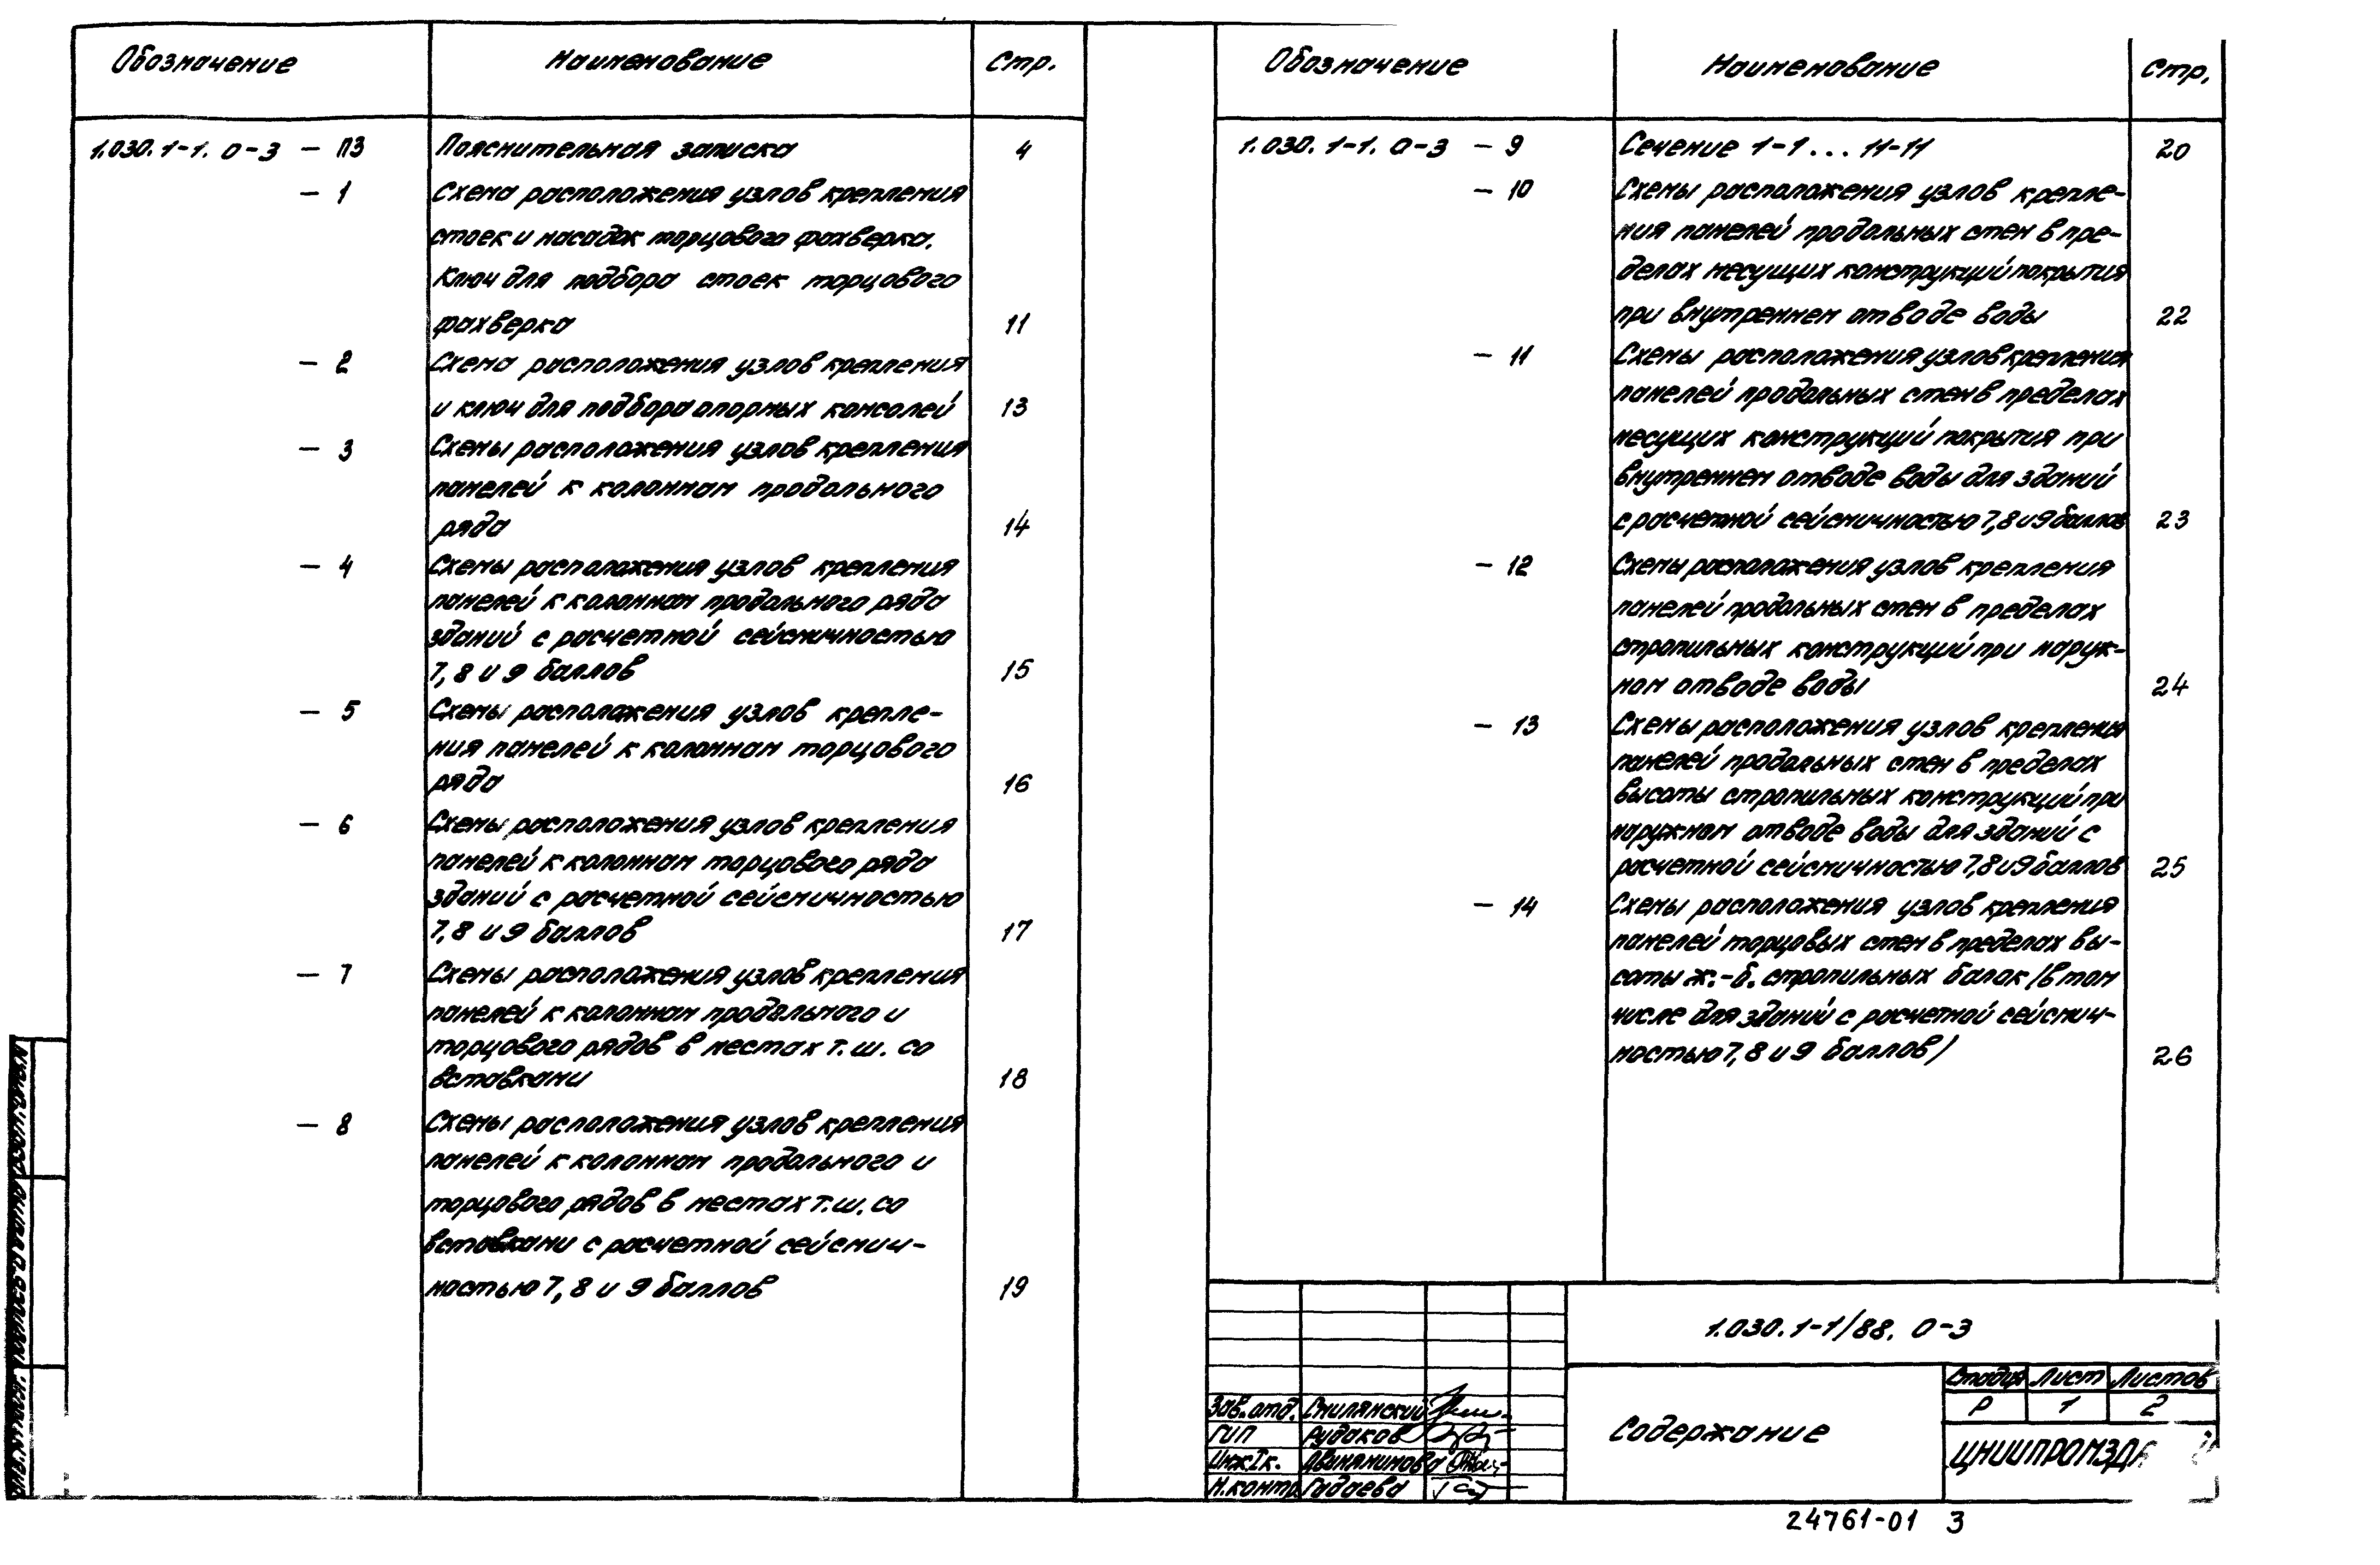 Обозначение Наименование Стр.
1.030.1-1. 0-3 - ПЗ Пояснительная записка 4
- 1 Схема расположения узлов крепления
стоек и насадок торцового фахверка.
Ключ для подбора стоек торцового
фахверка 11
- 2 Схема расположения узлов крепления
и ключ для подбора опорных консолей 13
- 3 Схемы расположения узлов крепления
панелей к колоннам продольного
ряда 14
- 4 Схемы расположения узлов крепления
панелей к колоннам продольного ряда
зданий с расчетной сейсмичностью
7, 8 и 9 баллов 15
- 5 Схемы расположения узлов крепле-
ния панелей к колоннам торцового
ряда 16
- 6 Схемы расположения узлов крепления
панелей к колоннам торцового ряда
зданий с расчетной сейсмичностью
7, 8 и 9 баллов 17
- 7 Схемы расположения узлов крепления
панелей к колоннам продольного и
торцового рядов в местах т.ш. со
вставками 18
- 8 Схемы расположения узлов крепления
панелей к колоннам продольного и
торцового рядов в местах т.ш. со
вставками с расчетной сейсмич-
ностью 7, 8 и 9 баллов 19
Обозначение Наименование Стр.
1.030.1-1. 0-3 - 9 Сечение 1-1 ... 11-11 20
- 10 Схемы расположения узлов крепле-
ния панелей продольных стен в пре-
делах несущих конструкций покрытия
при внутреннем отводе воды 22
- 11 Схемы расположения узлов крепления
панелей продольных стен в пределах
несущих конструкций покрытия при
внутреннем отводе воды для зданий
с расчетной сейсмичностью 7, 8 и 9 баллов 23
- 12 Схемы расположения узлов крепления
панелей продольных стен в пределах
стропильных конструкций при наруж-
ном отводе воды 24
- 13 Схемы расположения узлов крепления
панелей продольных стен в пределах
высоты стропильных конструкций при
наружном отводе воды для зданий с
расчетной сейсмичностью 7, 8 и 9 баллов 25
- 14 Схемы расположения узлов крепления
панелей торцовых стен в пределах вы-
соты ж.-б. стропильных балок (в том
числе для зданий с расчетной сейсмич-
ностью 7, 8 и 9 баллов) 26
1.030.1-1/88. 0-3
Содержание
Стадия Лист Листов
Р 1 2
Зав. отд. Смилянский
ГИП Рудаков
Инж. I к. Двинянинова
Н.контр. Гадаева
ЦНИИПРОМЗДА
24761-01 3